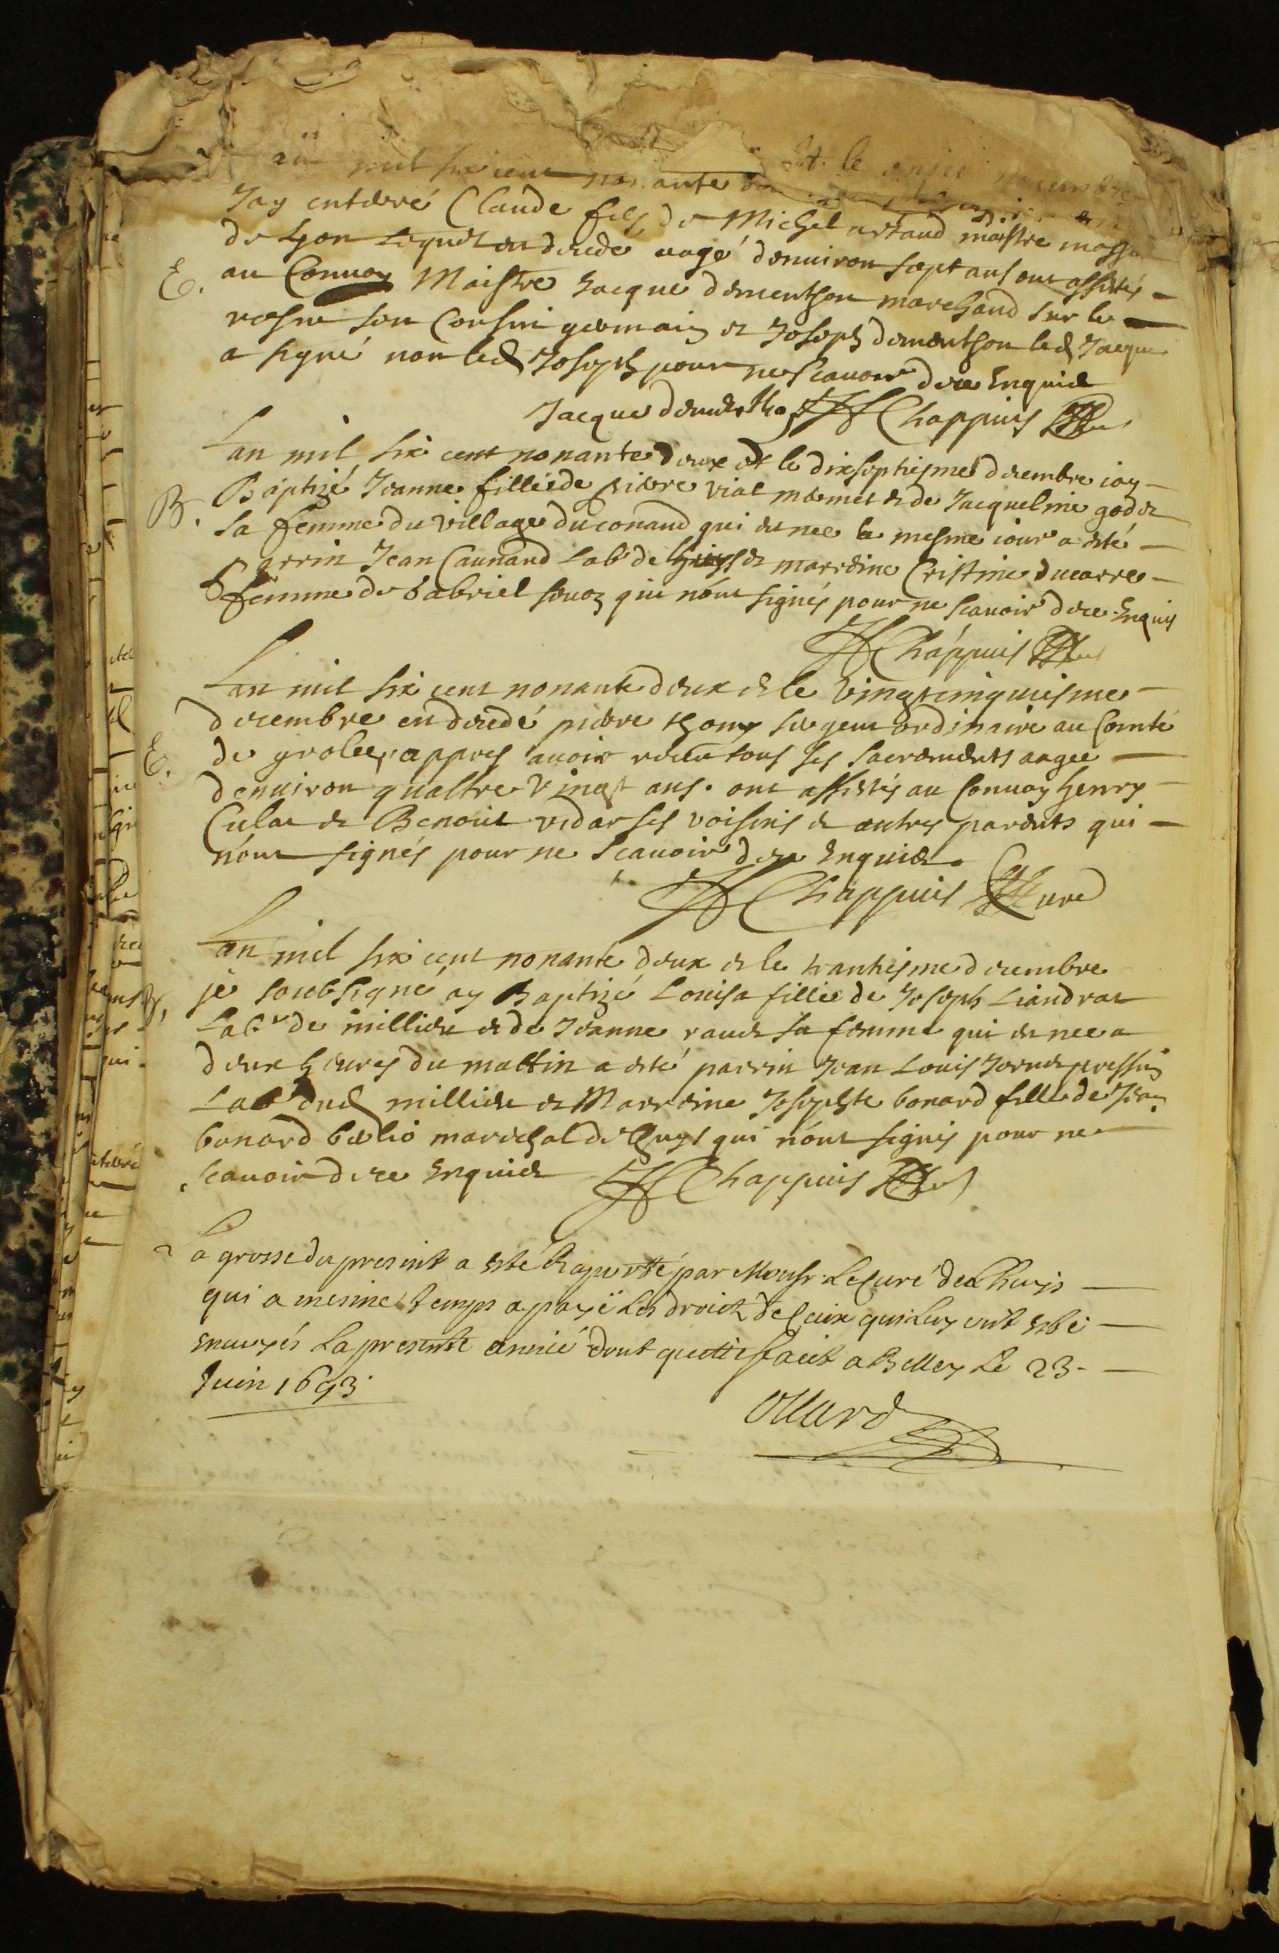 an mil six cent nonante et le decembre
Jay enterré Claude fils de Michel artaud maistre masson
de Lyon lequel est decede aagé denuiron sept ans ont assistés
E. au Conuoy Maistre Jacque dementhon marchand sur le
rosne son Consin germain et Joseph dementhon led Jacque
a signé non led Joseph pour ne scauoir de ce Enquis
Jacque dementhon Chappuis
Lan mil six cent nonante deux et le dixseptiesme decembre iay
B. Baptizé Jeanne fillie de pierre vial et de Jacqueline godet
sa femme du village du conand qui est nee le mesme iour a esté
parrin Jean Caunard Labr de et marreine Cristine ducarre
femme de gabriel qui nont signés pour ne scauoir de ce Enquis
Chappuis
Lan mil six cent nonante deux et le vingtcinquiesme
decembre est decedé pierre thomy sergent ordinaire au Comté
E. de grolee appres auoir receu tous ses sacrements aagee
denuiron quattre vingt ans. ont assistés au Conuoy henry
Culat et Benoit vidar ses voisins et autres parents qui
nont signés pour ne scauoir de ce Enquis.
Chappuis Curé
Lan mil six cent nonante deux et le trantiesme decembre
B. je soubsigné ay Baptizé Louisa fillie de Joseph Liandrat
Labr de millieu et de Jeanne raud sa femme qui est nee a
deux heures du mattin a esté parrin Jean Louis
Labr dud millieu et Marreine Josephte bonard fille de Jean
bonard marechal de lhuys qui nont signés pour ne
scauoir de ce Enquis Chappuis
La grosse du present a esté Raportté par Monsr Le Curé de Lhuys
qui a mesme temps a payé les droictz de qui luy ont esté
enuoyés La presente année dont quittis faict a Belley Le 23
Juin 1693.
Ollard